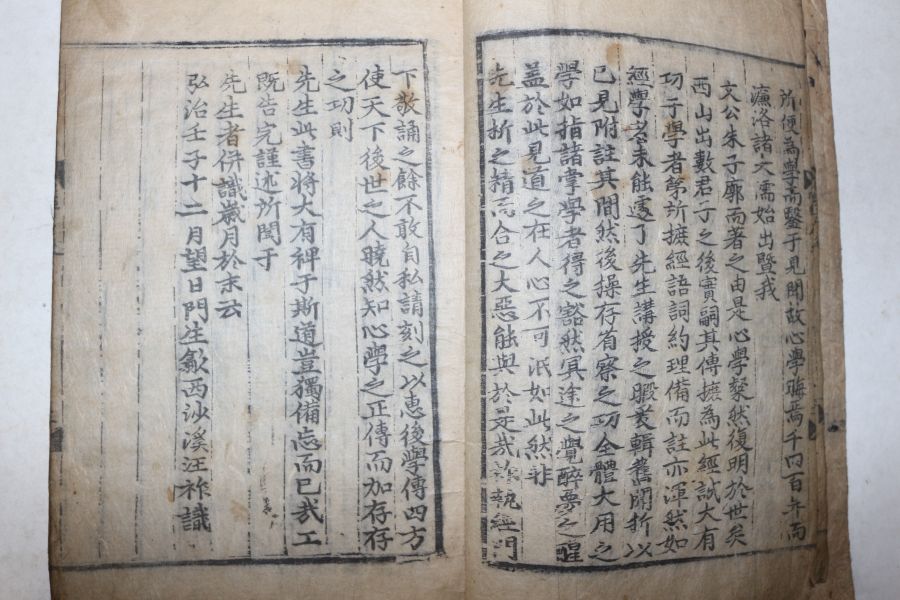 所便為學而鑿于見聞故心學晦焉千四百年而
濂洛諸大儒始出暨我
文公朱子廓而著之由是心學粲然復明於世矣
西山出數君子之後實嗣其傳摭為此經試大有
功于學者第所摭經語詞約理備而註亦渾然如
經學者未能遽了先生講授之暇裒輯舊聞析以
已見附註其間然後操存省察之功全體大用之
學如指諸掌學者得之豁然冥途之覺醉夢之醒
盖於此見道之在人心不可泯如此然非
先生析之精而合之大惡能與於是哉 執經門
下敬誦之餘不敢自私請刻之以惠後學傳四方
使天下後世之人曉然知心學之正傳而加存存
之功則
先生此書將大有裨于斯道豈獨備忘而已哉工
既告完謹述所聞于
先生者併識歲月於末云
弘治壬子十二月望日門生歙西沙溪汪祚識